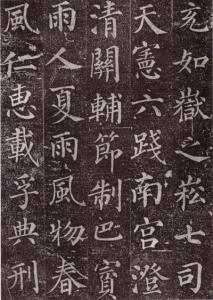 充如嶽之崧士司
天憲六踐南宮澄
清關輔節制巴賨
雨人夏雨風物春
風仁惠載孚典刑